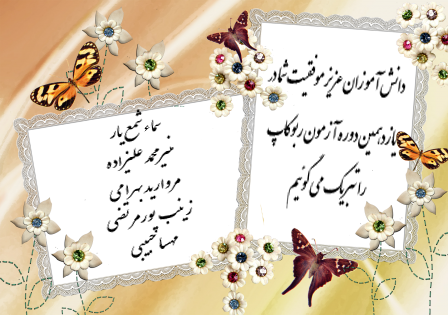 دانش آموزان عزیز موفقیت شما در
یازدهمین دوره آزمون ربوکاپ
را تبریک می گوئیم
سماء شمع یار
منیر محمد علیزاده
مروارید بهرامی
زینب پور مرتضی
مهسا حبیبی